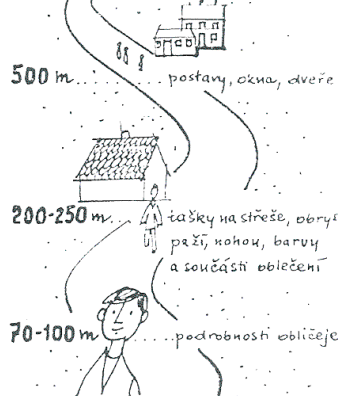 500 m........ postavy, okna, dveře
200-250 m... tašky na střeše, obrys
paží, nohou, barvy
a součásti oblečení
70-100 m ..... podrobnosti obličeje